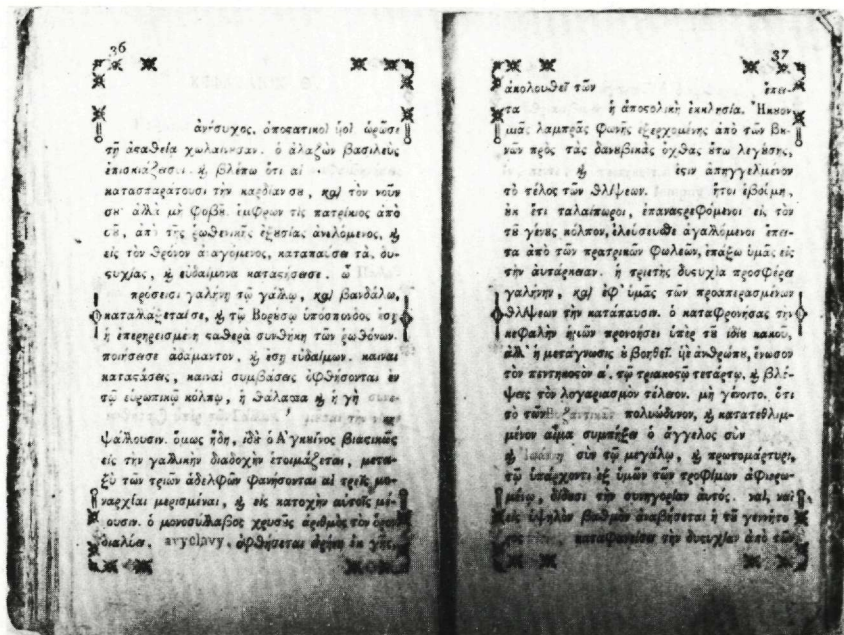 36
ἀνήσυχος. ἀποστατικοὶ ὠρῶσε
τῇ ἀσαθείᾳ ὁ ἀλαζὼν βασιλεὺς
ἐπισκιάζεσαι. ϗ βλέπω ὅτι αἱ
κατασπαράτουσι τὴν καρδίαν σου, καὶ τὸν νοῦν
σου ἀλλὰ μὴ φοβοῦ. ἔμφρων τὶς πατρίκιος ἀπὸ
σοῦ, ἀπὸ τῆς ῥωθενικῆς ἐξουσίας ἀνελόμενος, ϗ
εἰς τὸν θρόνον ἀναγόμενος, καταπαύσει τὰ. δυ-
στυχίας, ϗ εὐδαίμονα καταστήσει σε. ὦ
πρόσεισι γαλήνη τῷ γάλλῳ, καὶ βανδάλῳ,
καταλλάξεταί σε, ϗ τῷ Βορύσῳ ὑπόσπονδος ἔσῃ
ἡ ἐπερηρεισμένη σαθερὰ συνθήκη τῶν ῥωθόνων.
ποιήσει σε ἀδάμαντον, ϗ ἔσῃ εὐδαίμων. καιναὶ
καταστάσεις, καιναὶ συμβάσεις ὀφθήσονται ἐν
τῷ εὐρωπικῷ κόλπῳ, ἡ θάλασσα ϗ ἡ γῆ συνε-
ψάλλουσιν. ὅμως ἤδη, ἰδοὺ ὁ Ἀγκυῖνος βιαστικῶς
εἰς τὴν γαλλικὴν διαδοχὴν ἑτοιμάζεται, μετα-
ξὺ τῶν τριῶν ἀδελφῶν φανήσονται αἱ τρεῖς μο-
ναρχίαι μερισμέναι, ϗ εἰς κατοχὴν αὐτοῖς μέ-
νουσιν. ὁ μονοσύλλαβος χρυσῆς ἀριθμὸς τὸν ὅρον
διαλύει. avyclavy. ὀφθήσεται εἰρήνη ἐκ γῆς,
37
ἀκολουθεῖ τῶν ἔπει-
τα ἡ ἀποστολικὴ ἐκκλησία. Ἤκουον
μιᾶς λαμπρᾶς φωνῆς ἐξερχομένης ἀπὸ τῶν Βυ-
νῶν πρὸς τὰς δανυβικὰς ὄχθας οὕτω λεγούσης,
ϗ ἐστιν ἀπηγγελμένον
τὸ τέλος τῶν θλίψεων. ἤτοι ἐβόϊμη,
οὐκ ἔτι ταλαίπωροι, ἐπαναστρεφόμενοι εἰς τὸν
τοῦ γένους κόλπον, ἐλεύσεσθε ἀγαλλόμενοι ἔπει-
τα ἀπὸ τῶν πρατρικῶν φωλεῶν, ἐπάξω ὑμᾶς εἰς
τὴν αὐτάρκειαν. ἡ τριετὴς δυστυχία προσφέρει
γαλήνην, καὶ ἐφ' ὑμᾶς τῶν προαπερασμένων
θλίψεων τὴν κατάπαυσιν. ὁ καταφρονήσας τὴν
κεφαλὴν ἡμῶν προνοήσει ὑπὲρ τοῦ ἰδίου κακοῦ,
ἀλλ' ἡ μετάγνωσις οὐ βοηθεῖ. υἱὲ ἀνθρώπου, ἕνωσον
τὸν πεντηκοστὸν α. τῷ τριακοστῷ τετάρτῳ. ϗ βλέ-
ψεις τὸν λογαριασμὸν τέλειον. μὴ γένοιτο. ὅτι
τὸ τῶν Βυζαντικῶν πολυώδυνον, ϗ κατατεθλιμ-
μένον αἷμα συμπήξει ὁ ἄγγελος σὺν
ϗ Ἰωάννῃ σὺν τῷ μεγάλῳ, ϗ πρωτομάρτυρι,
τῷ ὑπάρχοντι ἐξ ὑμῶν τῶν τροφίμων ἀφιερω-
μένῳ, δίδουσι τὴν συνηγορίαν αὐτός. ναὶ, ναὶ
εἰς ὑψηλὸν βαθμὸν ἀναβήσεται ἡ τοῦ γεννήτο
καταφανείσει τὴν δυστυχίαν ἀπὸ τῶν